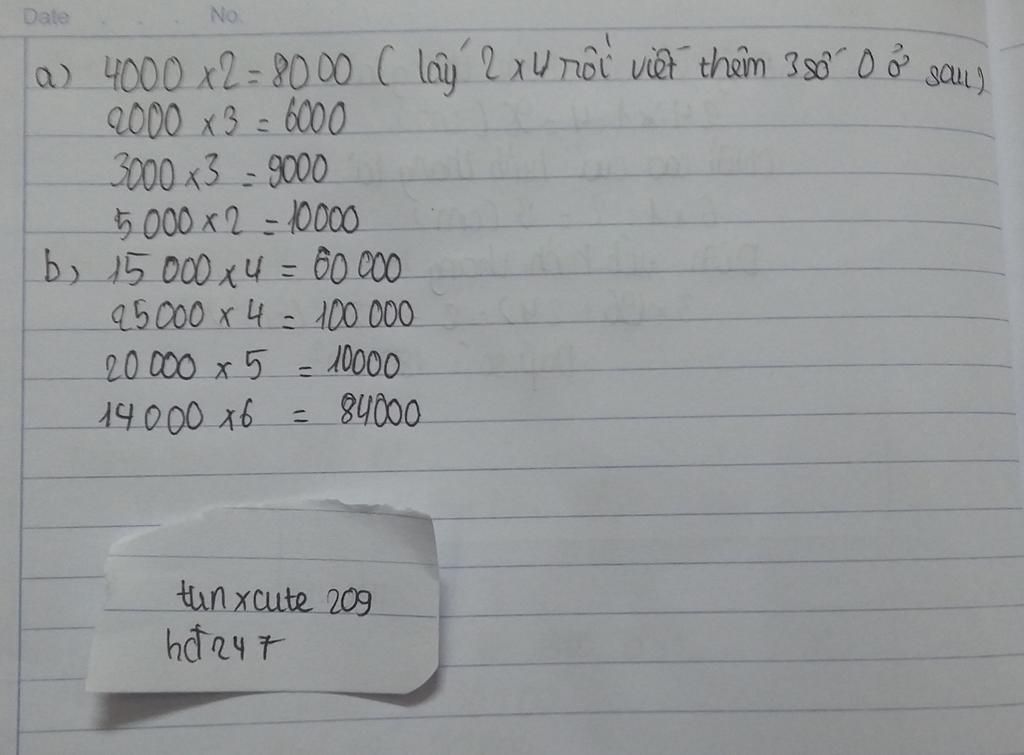 Date . . . No.
a) 4000 x 2 = 8000 ( lấy 2 x 4 rồi viết thêm 3 số 0 ở sau)
2000 x 3 = 6000
3000 x 3 = 9000
5 000 x 2 = 10000
b) 15 000 x 4 = 60 000
25000 x 4 = 100 000
20 000 x 5 = 10000
14 000 x 6 = 84000
tun xcute 209
hđ 247